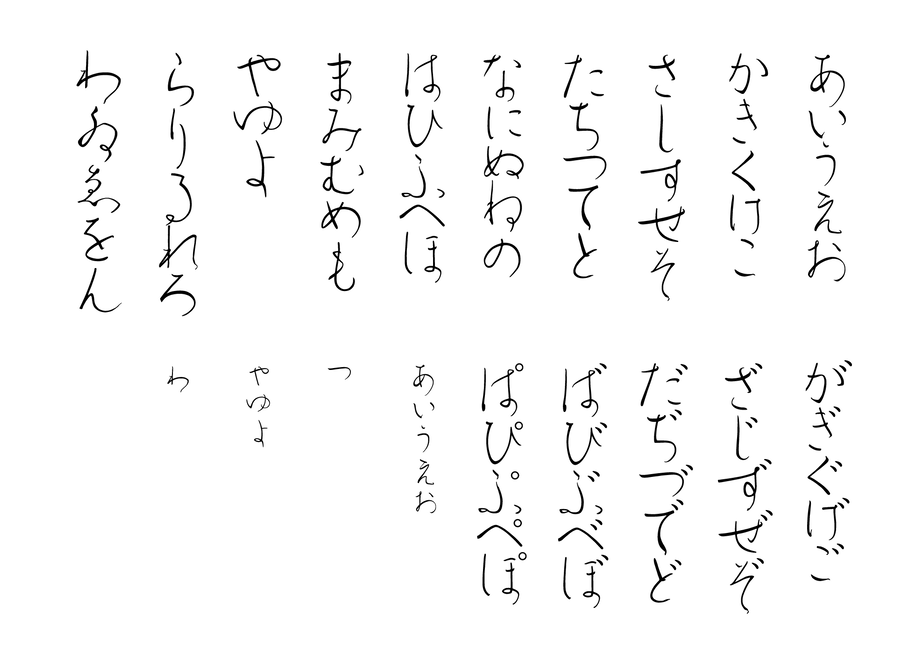 あいうえお
かきくけこ
さしすせそ
たちつてと
なにぬねの
はひふへほ
まみむめも
やゆよ
らりるれろ
わゐゑをん
がぎぐげご
ざじずぜぞ
だぢづでど
ばびぶべぼ
ぱぴぷぺぽ
ぁぃぅぇぉ
っ
ゃゅょ
ゎ